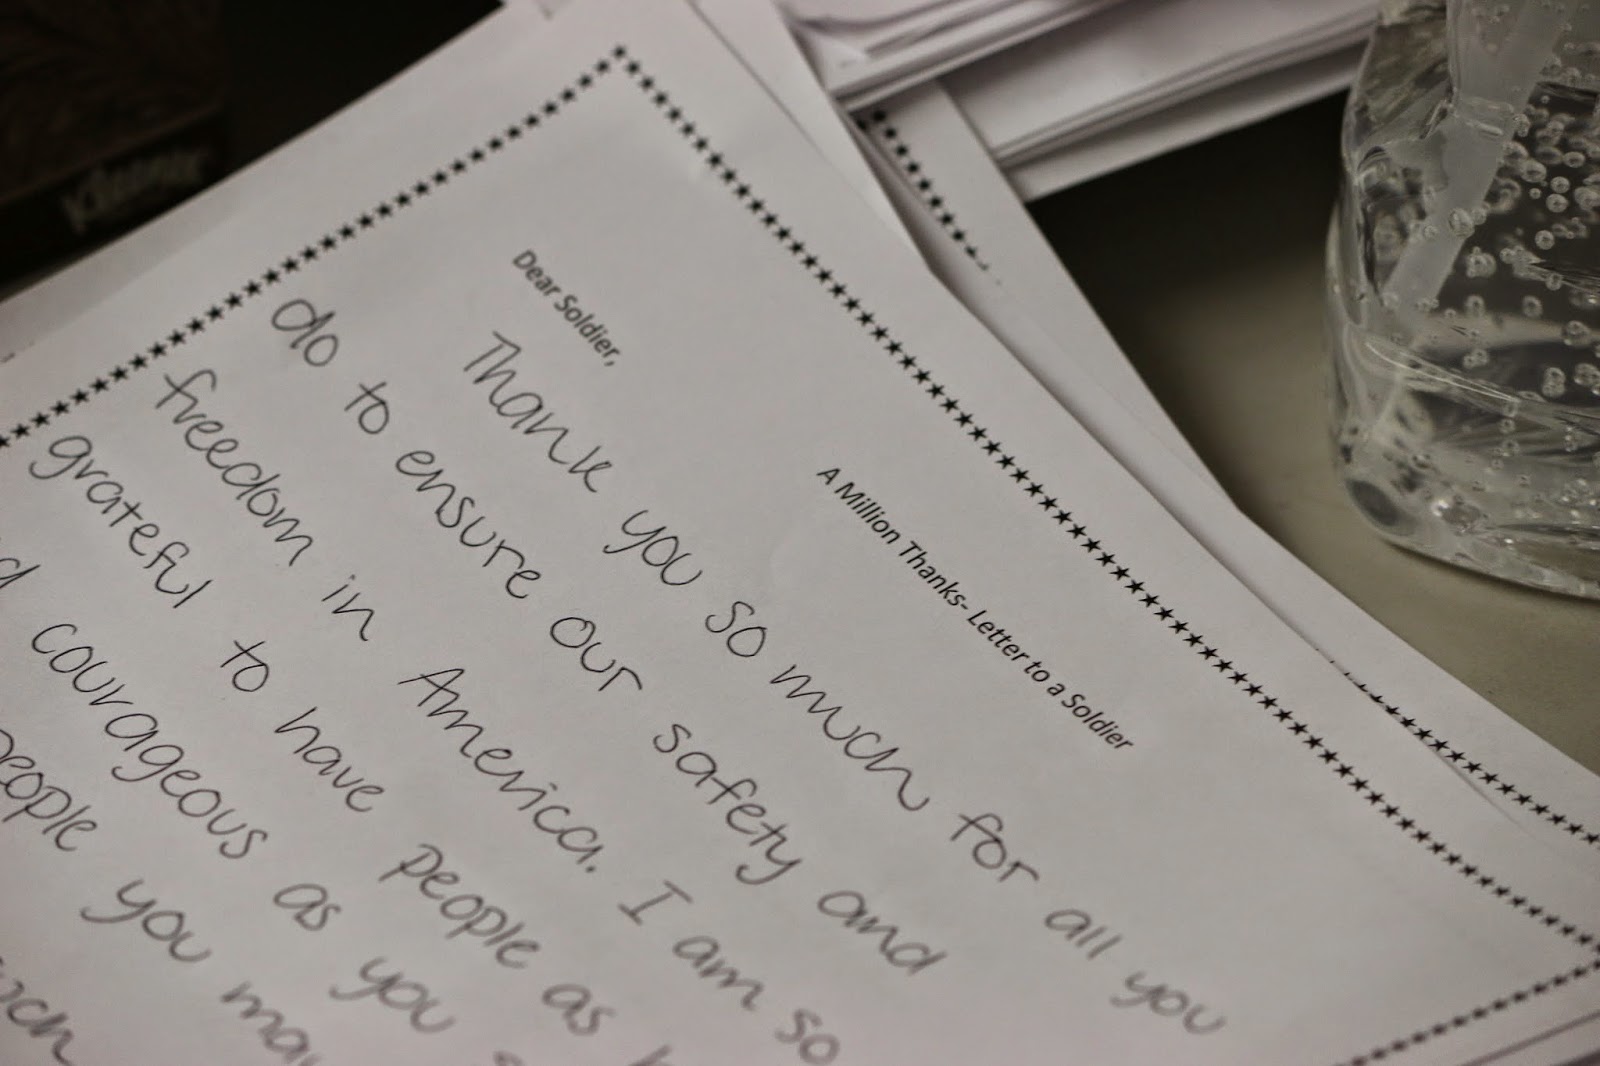 A Million Thanks- Letter to a Soldier
Dear Soldier,
Thank you so much for all you
do to ensure our safety and
freedom in America. I am so
grateful to have people as
courageous as you
people you
Kleenex